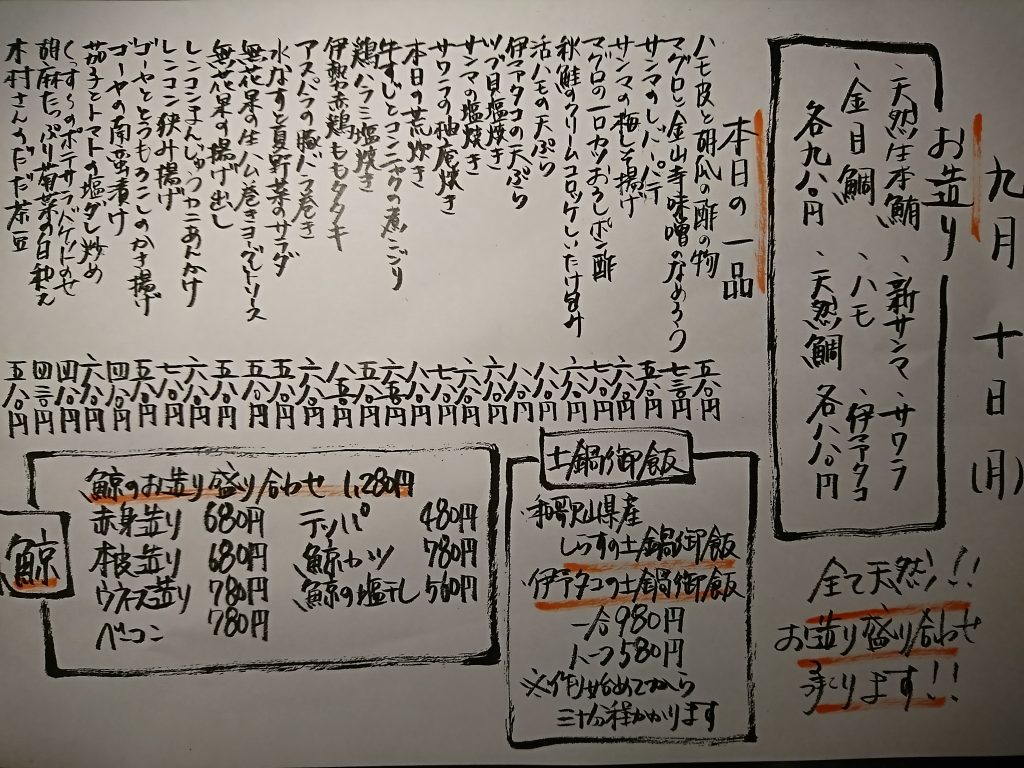 九月 十日(月)
お造り
、天然生本鮪 、新サンマ 、サワラ
、金目鯛 、ハモ 、伊予タコ
各九八〇円 、天然鯛 各八八〇円
全て天然!!
お造り盛り合わせ
承ります!!
本日の一品
ハモ皮と胡瓜の酢の物 五八〇円
マグロと金山寺味噌のなめろう 七三〇円
サンマのレバーパテ 五八〇円
サンマの梅しそ揚げ 六八〇円
マグロの一口カツおろしポン酢 七八〇円
秋鮭のクリームコロッケしいたけ包み 六八〇円
活ハモの天ぷら 八八〇円
伊予タコの天ぷら 八八〇円
ツブ貝塩焼き 六八〇円
サンマの塩焼き 六八〇円
サワラの柚庵焼き 七八〇円
本日の荒炊き 八八〇円
牛すじとコンニャクの煮こごり
鶏ハラミ塩焼き
伊勢赤鶏ももタタキ
アスパラの豚バラ巻き 六八〇円
水なすと夏野菜のサラダ 五八〇円
無花果の生ハム巻きヨーグルトソース 五八〇円
無花果の揚げ出し 五八〇円
レンコンまんじゅうカニあんかけ 六八〇円
レンコン挟み揚げ 七八〇円
ゴーヤととうもろこしのかき揚げ 五八〇円
ゴーヤの南蛮漬け 四八〇円
茄子とトマトの塩ダレ炒め 六八〇円
くんすけのポテサラバケットのせ 四八〇円
胡麻たっぷり菊菜の白和え 四三〇円
木村さんのだだ茶豆 五八〇円
土鍋御飯
和歌山県産
しらすの土鍋御飯
伊予タコの土鍋御飯
一合980円
ハーフ580円
※作り始めてから
三十分程かかります
鯨
鯨のお造り盛り合わせ 1,280円
赤身造り 680円 テッパ 480円
本皮造り 680円 鯨カツ 780円
ウネス造り 780円 鯨の塩干し 560円
ベーコン 780円